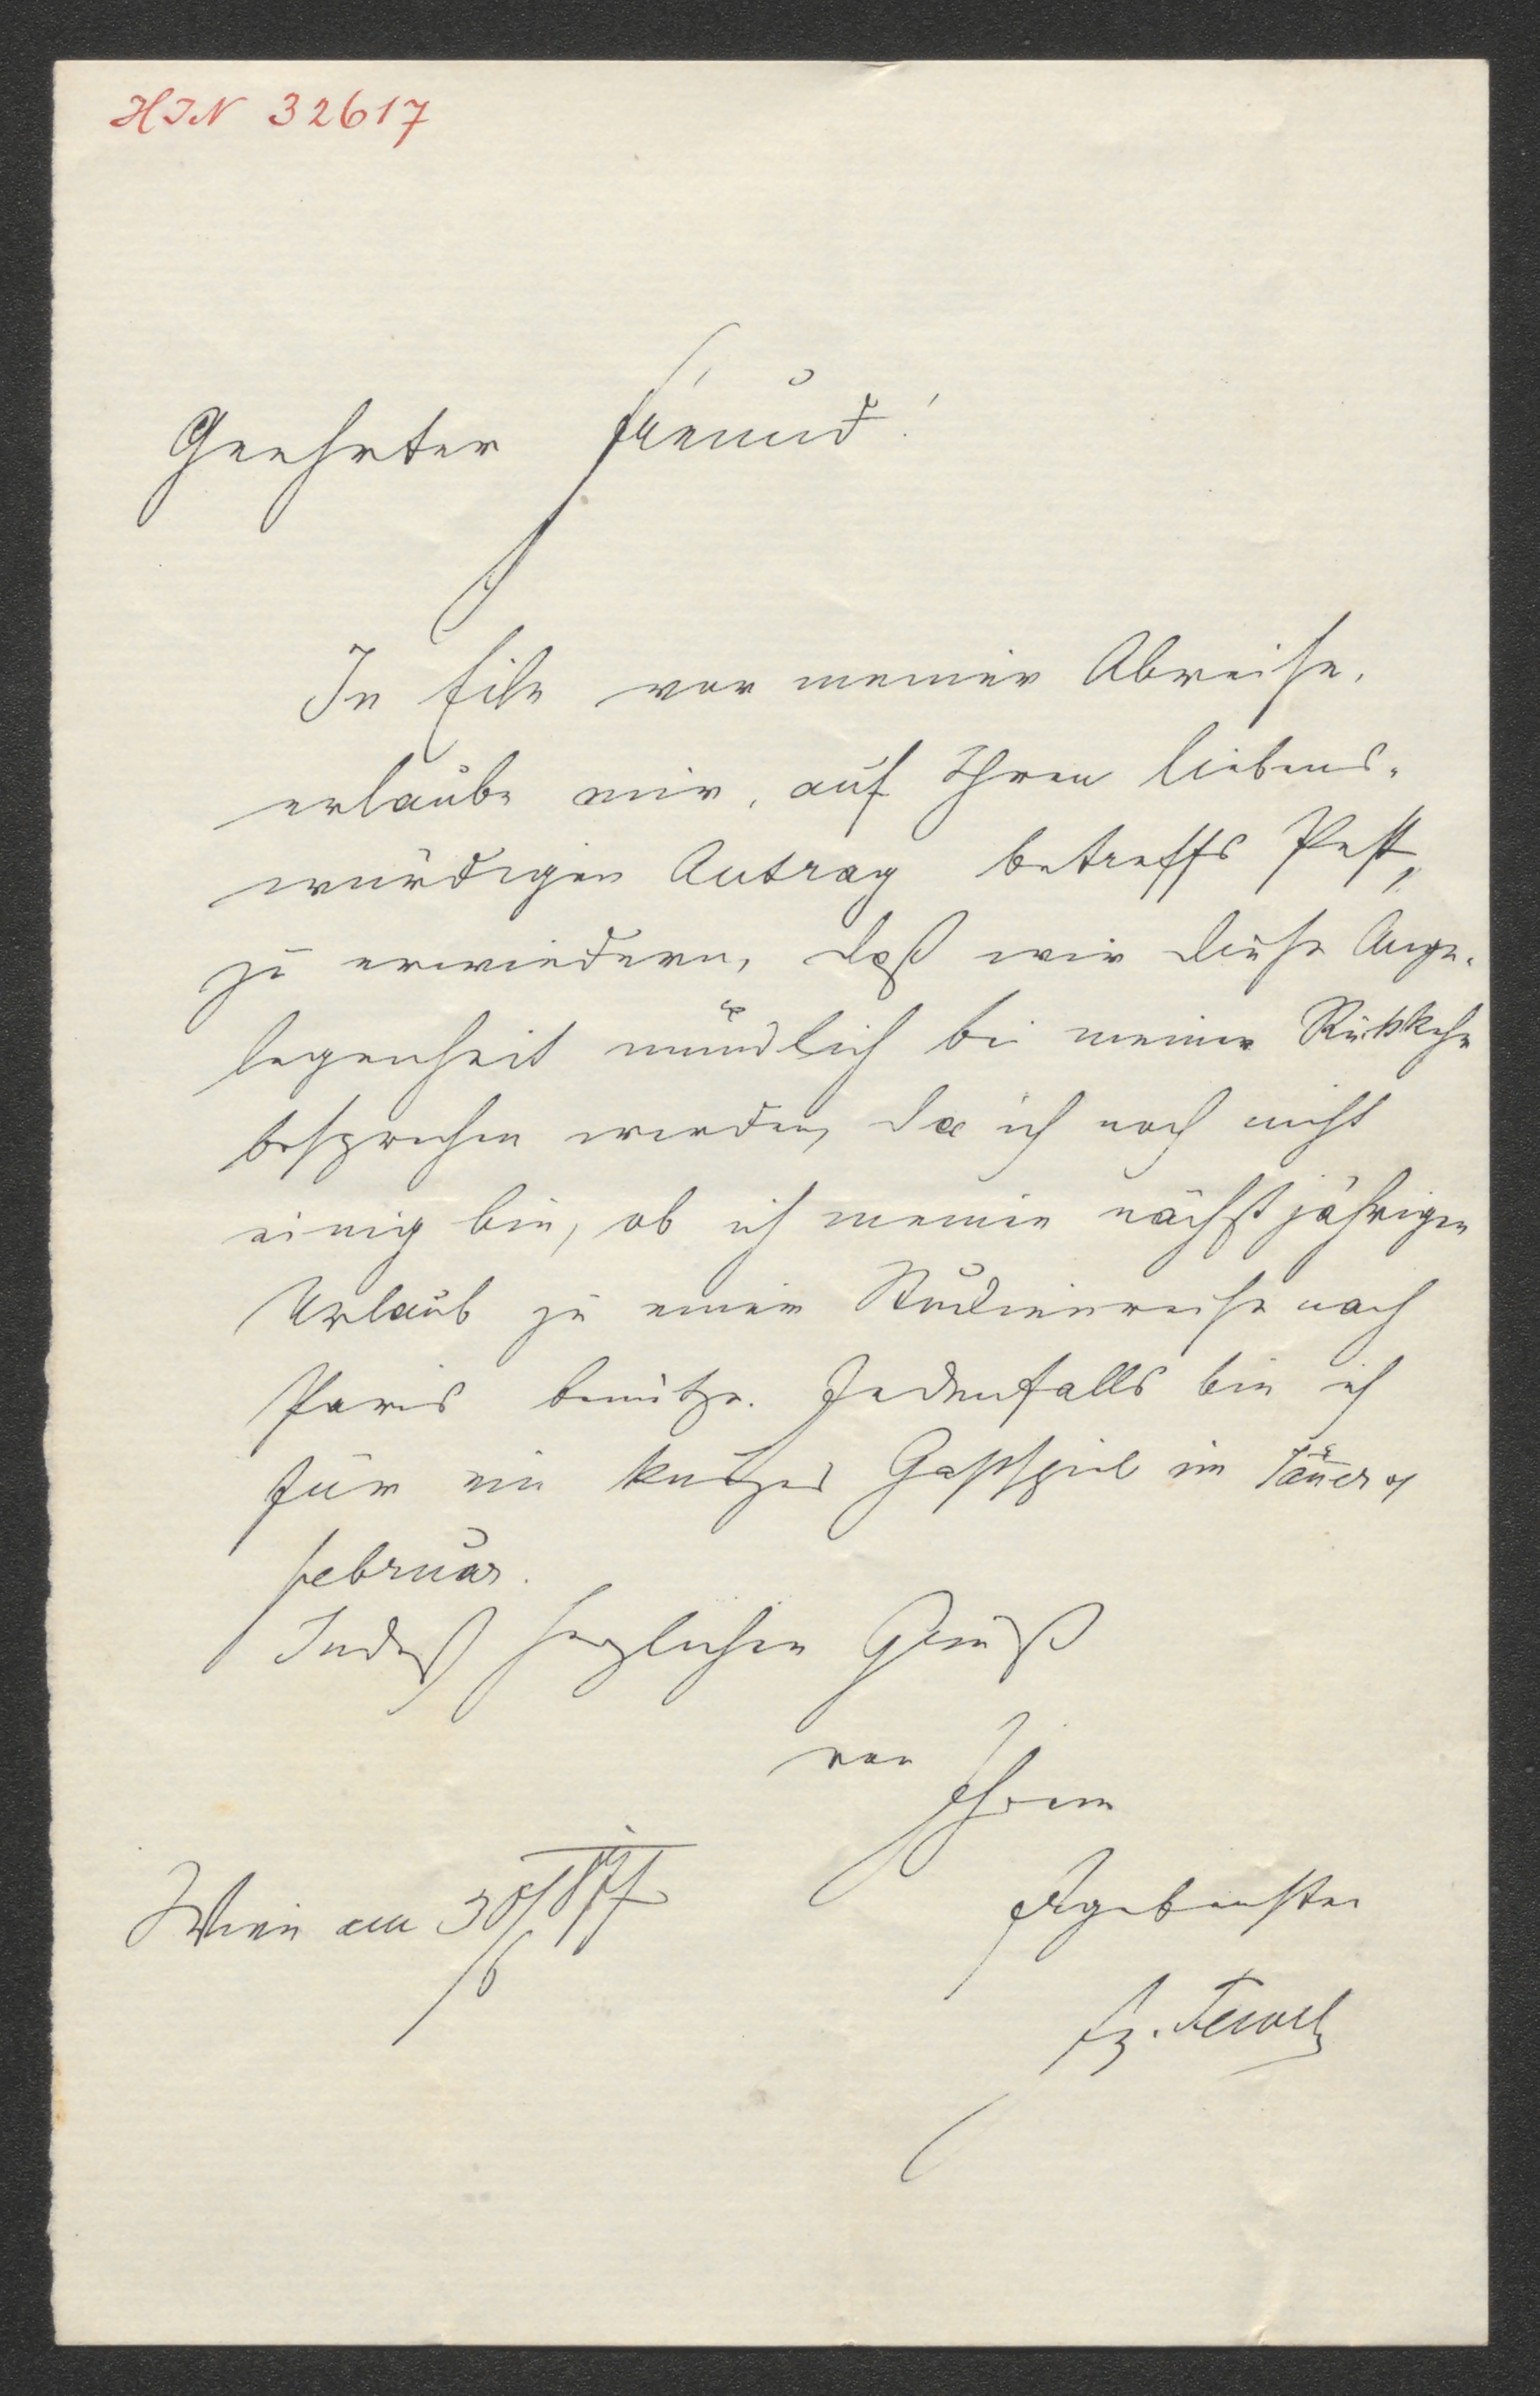 HIN 32617
Geehrter Freund!
In Eile vor meiner Abreise,
erlaube mir, auf Ihren liebens-
würdigen Antrag betreffs Pest,
zu erwiedern, daß wir diese Ange-
legenheit mündlich bei meiner Rückkehr
besprechen werden, da ich noch nicht
einig bin, ob ich meinen nächstjährigen
Urlaub zu einer Studienreise nach
Paris benütze. Jedenfalls bin ich
für ein kurzes Gastspiel im
Februar.
Indeß herzlichen Gruß
von
Ihrem
Ergebensten
Wien am 30/
6
Fz. Tewele